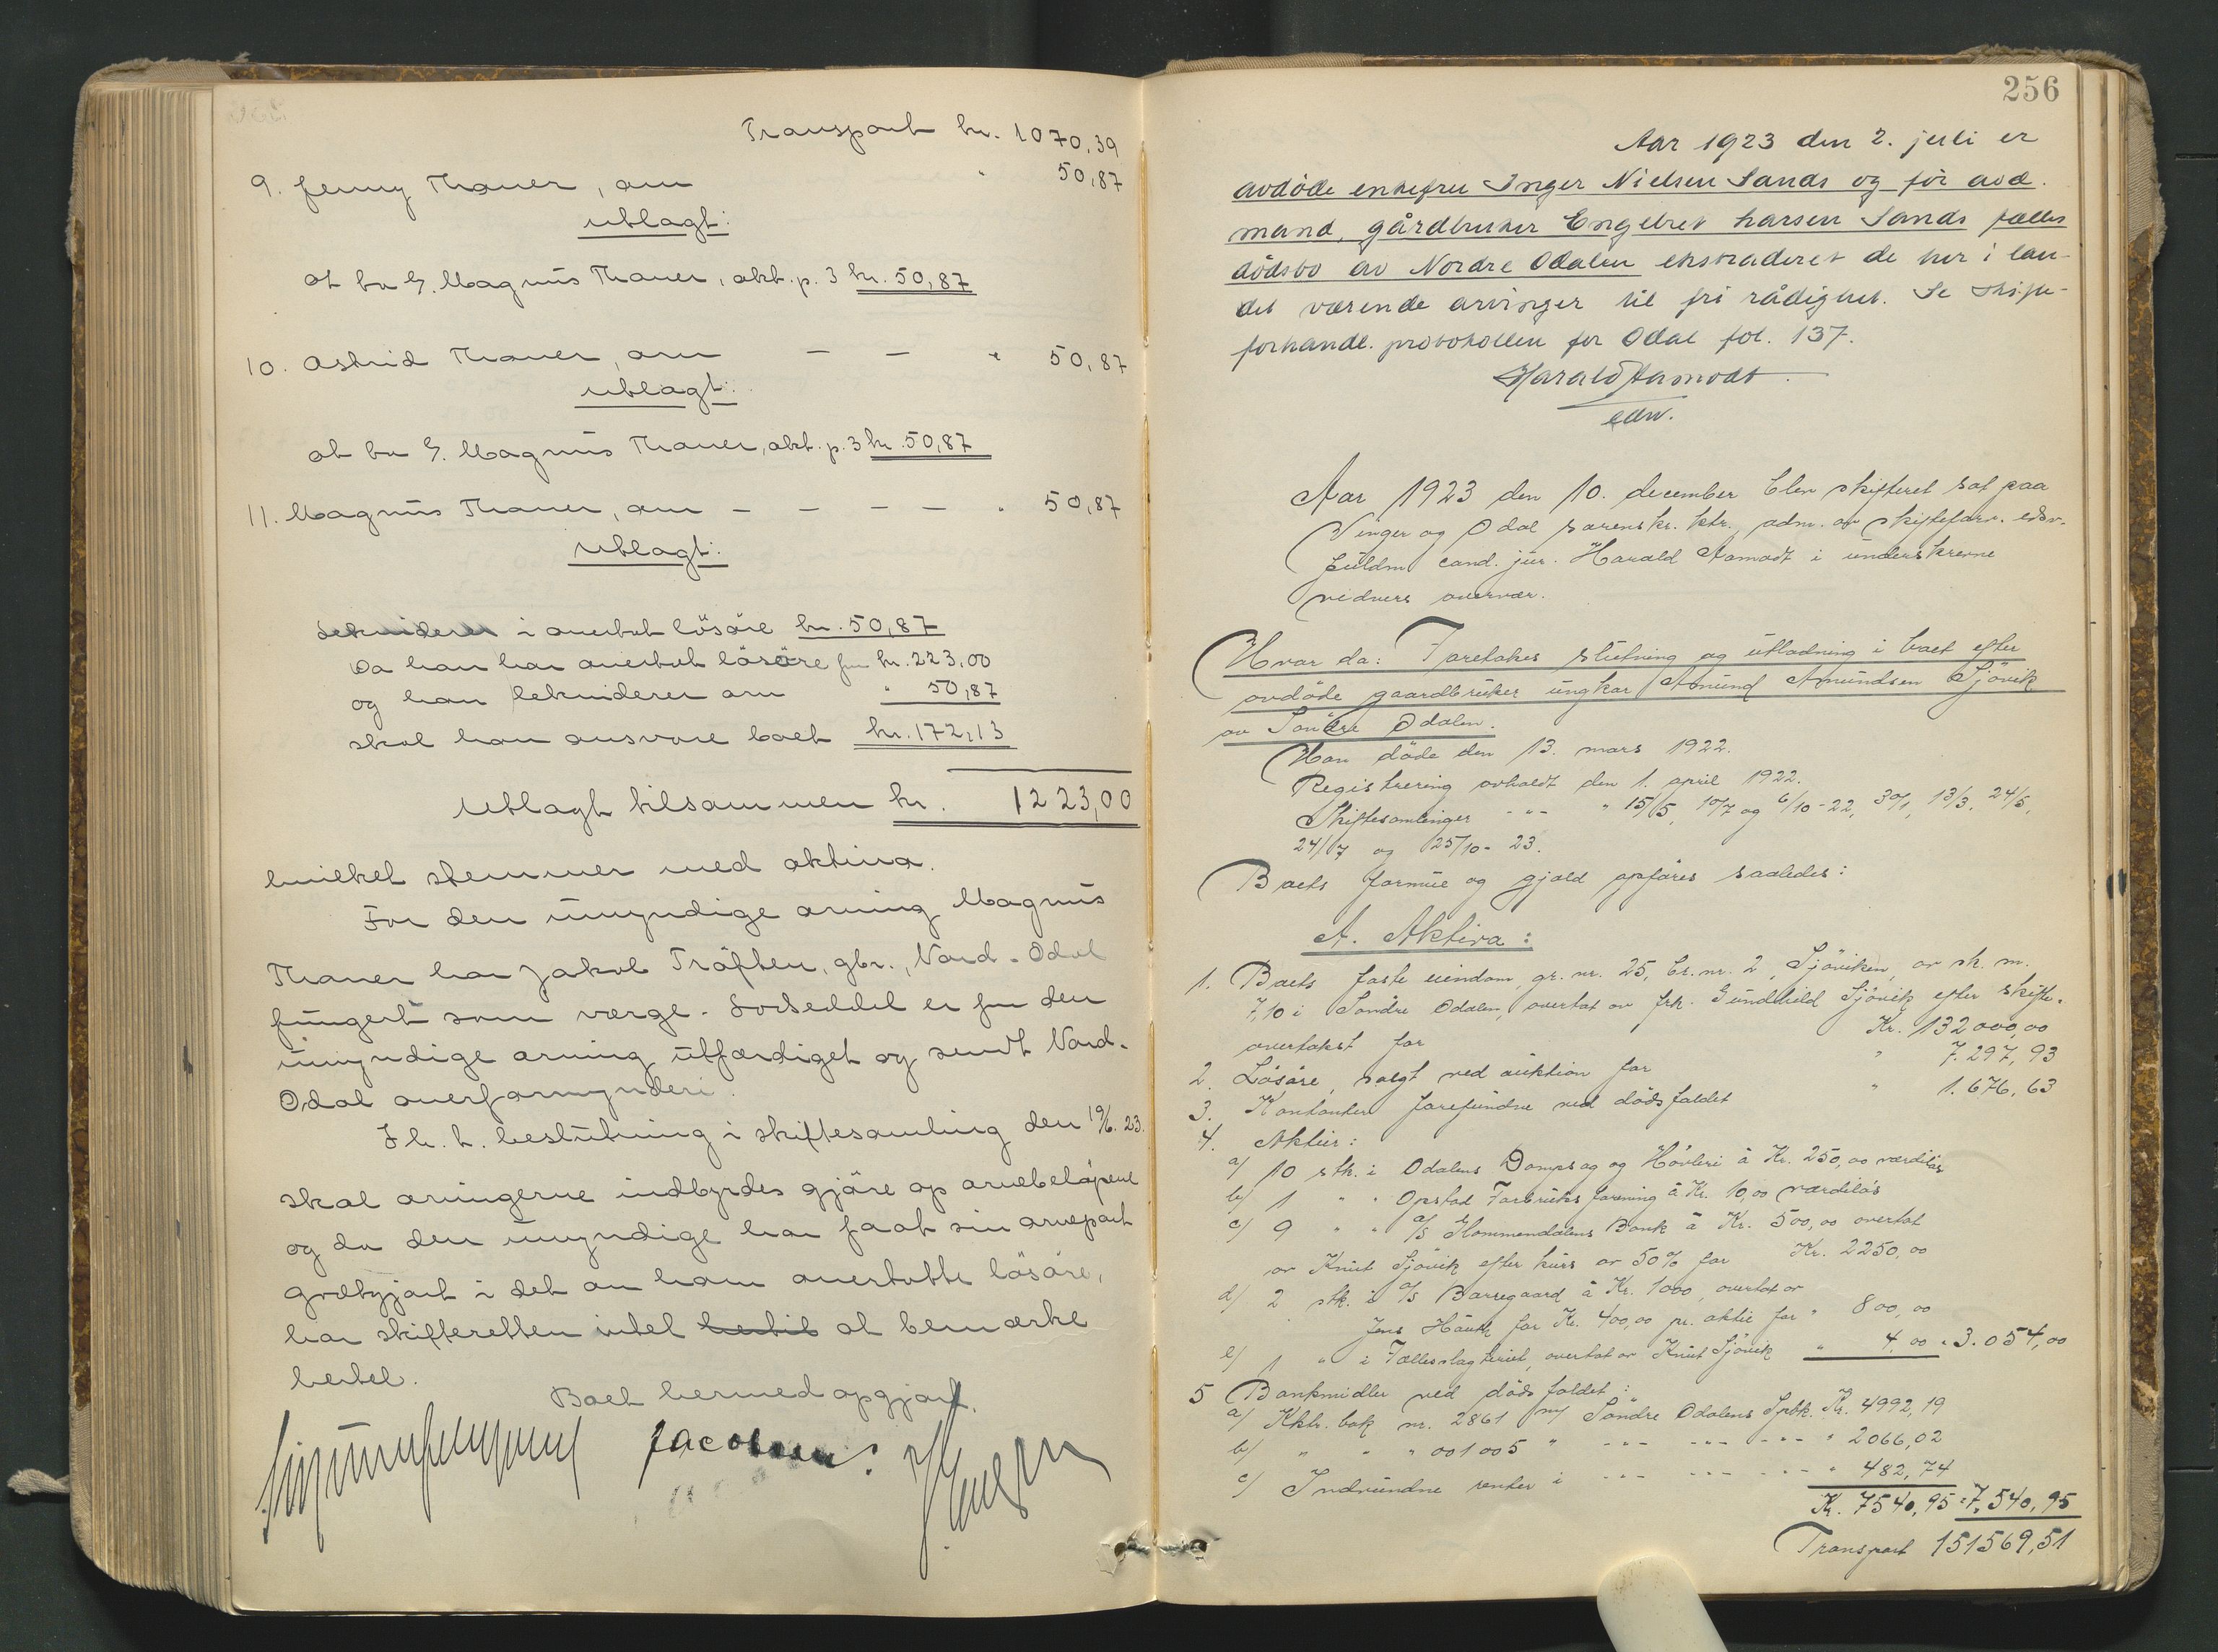 Transport kr. 1070,39
9. Jenny Thaner, arv " 50,87
utlagt:
at bo G. Magnus Thaner, akt. p. 3 kr. 50,87
10. Astrid Thaner, arv — — " 50,87
utlagt:
at bo G. Magnus Thaner, akt. p. 3 kr. 50,87
11. Magnus Thaner, arv — — — — " 50,87
utlagt:
dekuiderer i overtat lösöre kr. 50,87
Da han har overtat lösöre for kr. 223,00
og han lekviderer arv " 50,87
skal han ansvare boet kr. 172,13
Utlagt tilsammen kr. 1223,00
hvilket stemmer med aktiva.
For den umyndige arving Magnus
Thaner har Jakob Tröften, gbr., Nord-Odal
fungert som værge. Lodseddel er for den
umyndige arving utfærdiget og sendt Nord-
Odal overformynderi.
I h. t. beslutning i skiftesamling den 19/6. 23.
skal arvingerne indbyrdes gjöre op arvebelöpene
og da den umyndige har faat sin arvepart
godtgjort i det av ham overtatte lösöre,
har skifteretten intet hertil at bemærke
hertel.
Boet hermed opgjort.
Jacobsen.
256
Aar 1923 den 2. juli er
avdöde enkefru Inger Nielsen Sands og för avd.
mand, gårdbruker Engebret Larsen Sands fælles
dödsbo av Nordre Odalen ekstraderet de her i lan-
det værende arvinger til fri rådighet. Se skifte-
forhandl. protokollen for Odal fol. 137.
Harald Aamodt.
edsv.
Aar 1923 den 10. december blev skifteret sat paa
Vinger og Odal sorenskr. ktr., adm. av skifteforv. edsv.
fuldm. cand. jur. Harald Aamodt i underskrevne
vidners overvær.
Hvor da: Foretokes slutning og utlodning i boet efter
avdöde gaardbruker ungkar Amund Amundsen Sjövik
av Söndre Odalen.
Han döde den 13. mars 1922.
Registrering avholdt den 1. april 1922.
Skiftesamlinger -"- " 15/5, 10/7 og 6/10-22, 30/1, 13/3, 24/5,
24/7 og 25/10-23.
Boets formue og gjæld opföres saaledes:
A. Aktiva:
1. Boets faste eiendom, gr. nr. 25, br. nr. 2, Sjöviken, av sk. m.
7,10 i Söndre Odalen, overtat av frk. Gundhild Sjövik efter skifte-
overtakst for Kr. 132 000,00
2. Lösöre, solgt ved auktion for " 7.297,93
3. Kontanter forefundne ved dödsfaldet " 1.676,63
4. Aktier:
a/ 10 stk. i Odalens Dampsag og Hövleri à Kr. 250,00 værdilös
b/ 1 " " Opstad Forbruksforening à Kr. 10,00 værdilös
c/ 9 " " A/S Hommendalens Bank à Kr. 500,00 overtat
av Knut Sjövik efter kurs av 50% for Kr. 2250,00
d/ 2 stk. i A/S Borregaard à Kr. 1000, overtat av
Jens Haugh for Kr. 400,00 pr. aktie for " 800,00
e/ 1 " i Fællesslagteriet, overtat av Knut Sjövik " 4,00 " 3.054,00
5 Bankmidler ved dödsfaldet:
a/ Kktr. bok nr. 2861 m/ Söndre Odalens Spbk. Kr. 4992,19
b/ " " " 001005 " -"- -"- -"- " 2066,02
c/ Indvundne renter i -"- -"- -"- " 482,74
Kr. 7540,95 = 7.540,95
Transport 151569,51